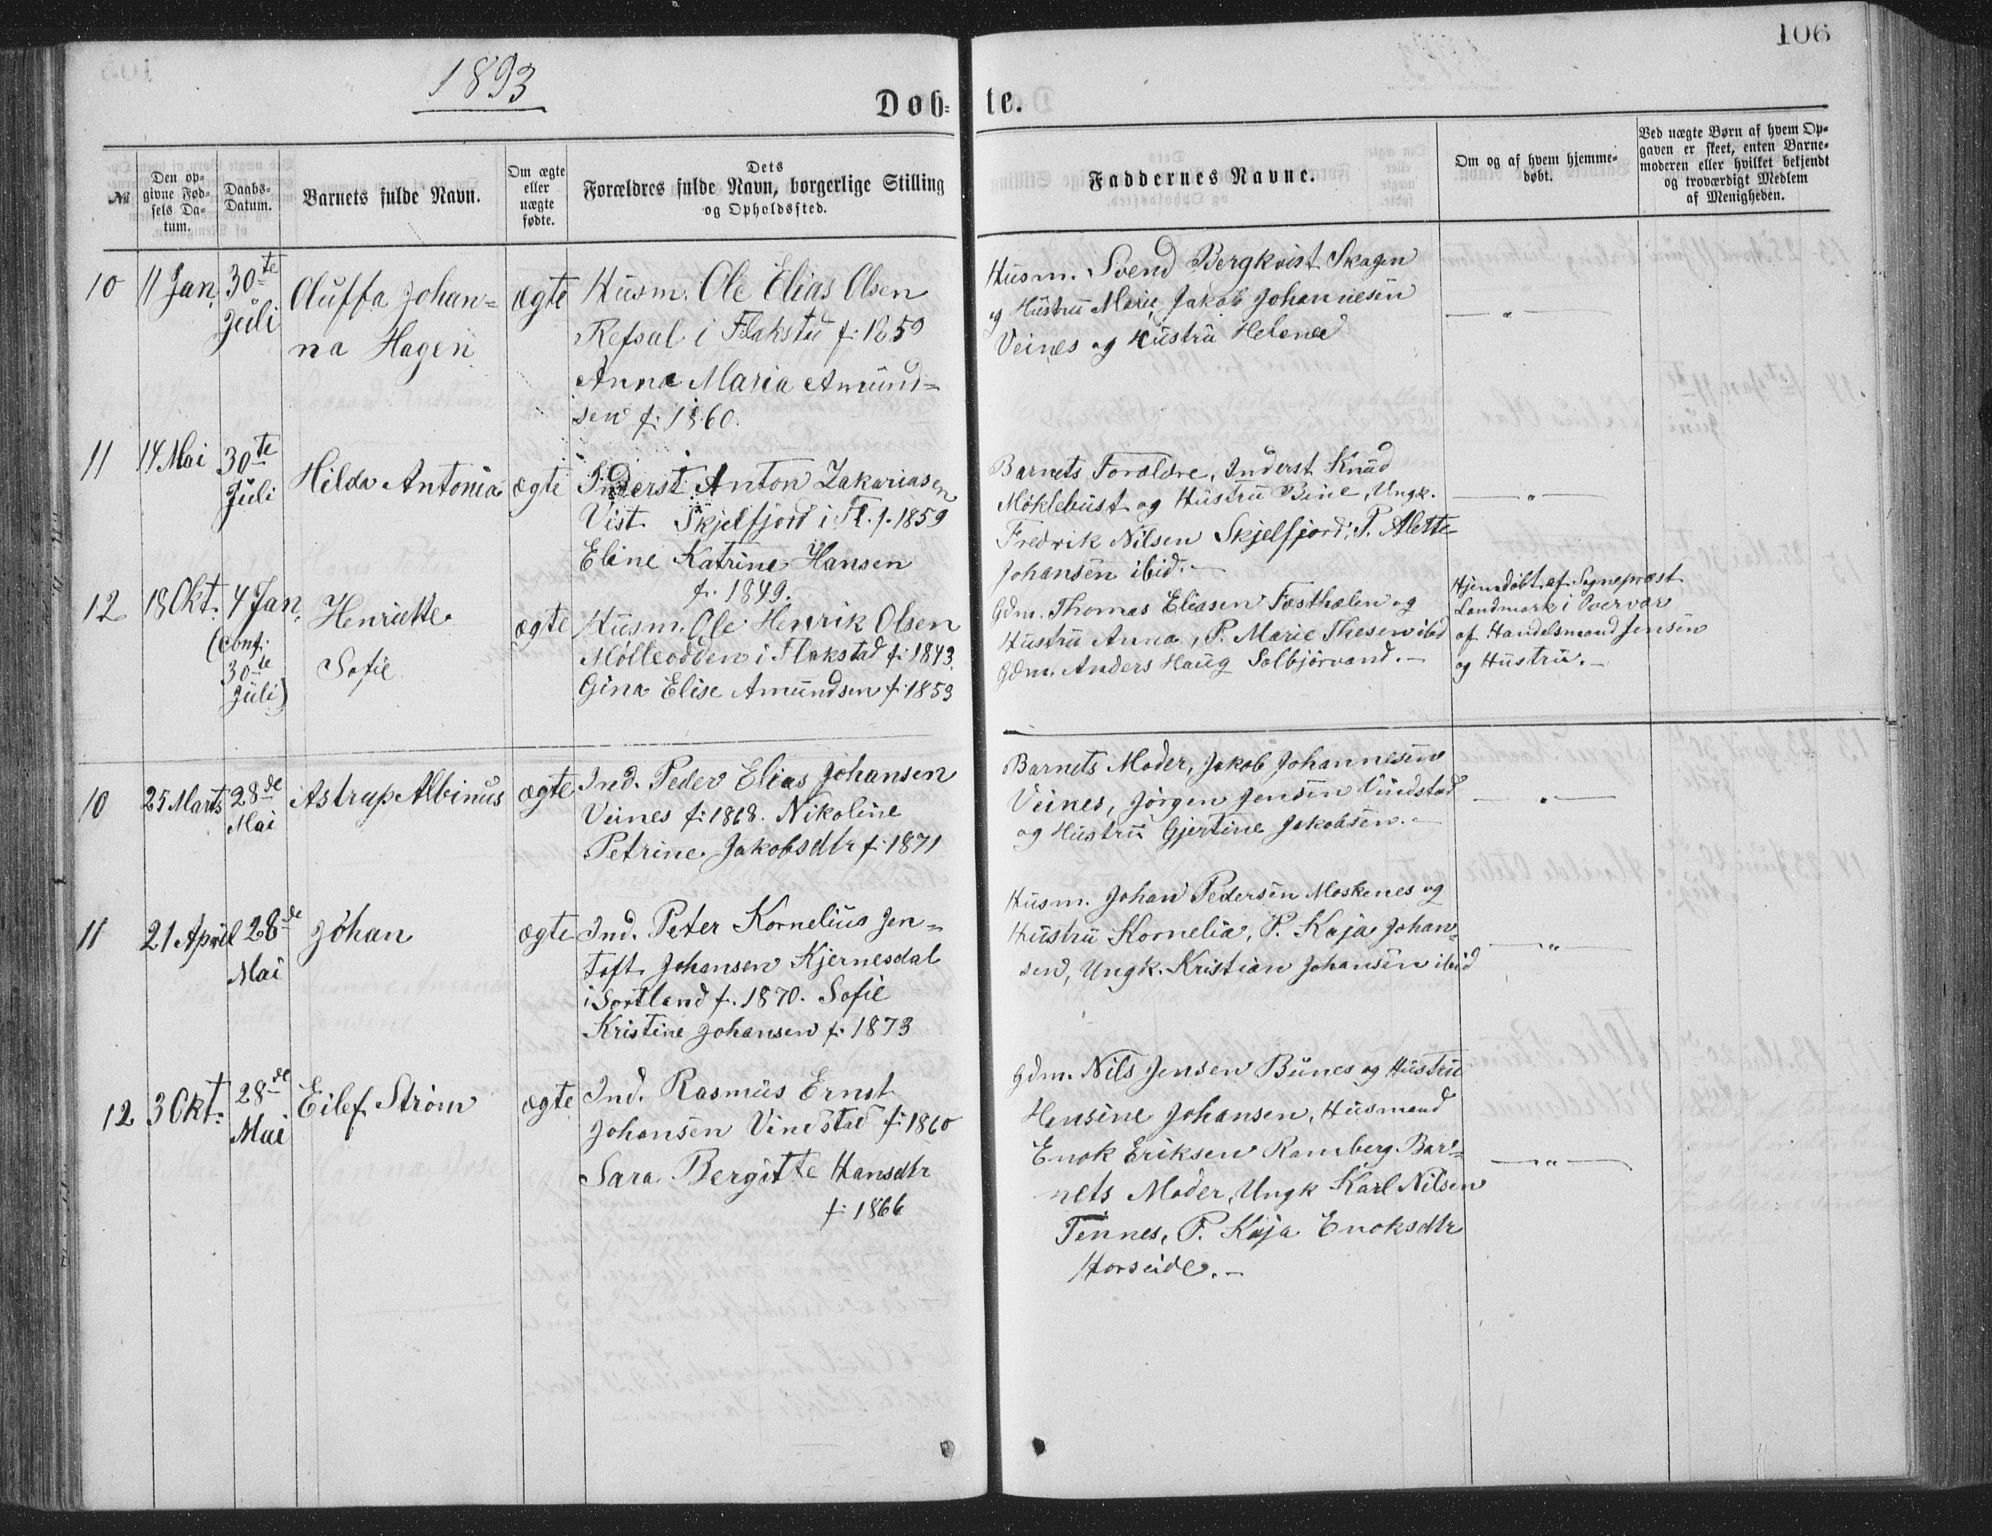 106
1893
Døb-te.
№
Den op-
givne Fød-
sels Da-
tum.
Daabs-
Datum.
Barnets fulde Navn.
Om ægte
eller
uægte
fødte.
Dets
Forældres fulde Navn, borgerlige Stilling
og Opholdssted.
Faddernes Navne.
Om og af hvem hjemme-
døbt.
Ved uægte Børn af hvem Op-
gaven er skeet, enten Barne-
moderen eller hvilket bekjendt
og troværdigt Medlem
af Menigheden.
10
11 Jan.
30te
Juli
Oluffa Johan-
na Hagen
ægte
Husm. Ole Elias Olsen
Refsal i Flakstad f. 1859
Anna Maria Amund-
sen f. 1860.
Husm. Svend Bergkvist Skagen
og Hustru Marie, Jakob Johannesen
Veines og Hustru Helene
— " —
11
14 Mai
30te
Juli
Hilda Antonia
ægte
Inderst Anton Zakariasen
Vist Skjelfjord i Fl. f. 1859
Eline Katrine Hansen
f. 1849.
Barnets Forældre, Inderst Knud
Møklebust og Hustru Bine, Ungk.
Fredrik Nilsen Skjelfjord, P. Alette
Johansen ibid. —
— " —
12
18 Okt.
4 Jan.
(conf.
30te
Juli)
Henriette
Sofie
ægte
Husm. Ole Henrik Olsen
Mølleodden i Flakstad f. 1843.
Gina Elise Amundsen f. 1853
Gdm. Thomas Eliasen Fæsthælen og
Hustru Anna, P. Marie Thesen ibid
Gdm. Anders Haug Solbjørvand. —
Hjemdøbt af Sogneprest
Landmark i Overvær
af Handelsmand Jensen
og Hustru. —
10
25 Marts
28de
Mai
Astrup Albinus
ægte
Ind. Peder Elias Johansen
Veines f. 1868. Nikoline
Petrine Jakobsdtr f. 1871
Barnets Moder, Jakob Johannesen
Veines, Jørgen Jensen Vindstad
og Hustru Gjertine Jakobsen. —
— " —
11
21 April
28de
Mai
Johan
ægte
Ind. Peter Kornelius Jen-
toft Johansen Kjernesdal
i Sortland f. 1870. Sofie
Kristine Johansen f. 1873
Husm. Johan Pedersen Moskenes og
Hustru Kornelia, P. Kaja Johan-
sen, Ungk. Kristian Johansen ibid
— " —
12
3 Okt.
28de
Mai
Eilef Strøm
ægte
Ind. Rasmus Ernst
Johansen Vindstad f. 1860
Sara Bergitte Hansdtr
f. 1866
Gdm. Nils Jensen Bunes og Hustru
Hensine Johansen, Husmand
Enok Eriksen Ramberg Bar-
nets Moder, Ungk Karl Nilsen
Tennes, P. Kaja Enoksdtr
Horseide. —
— " —